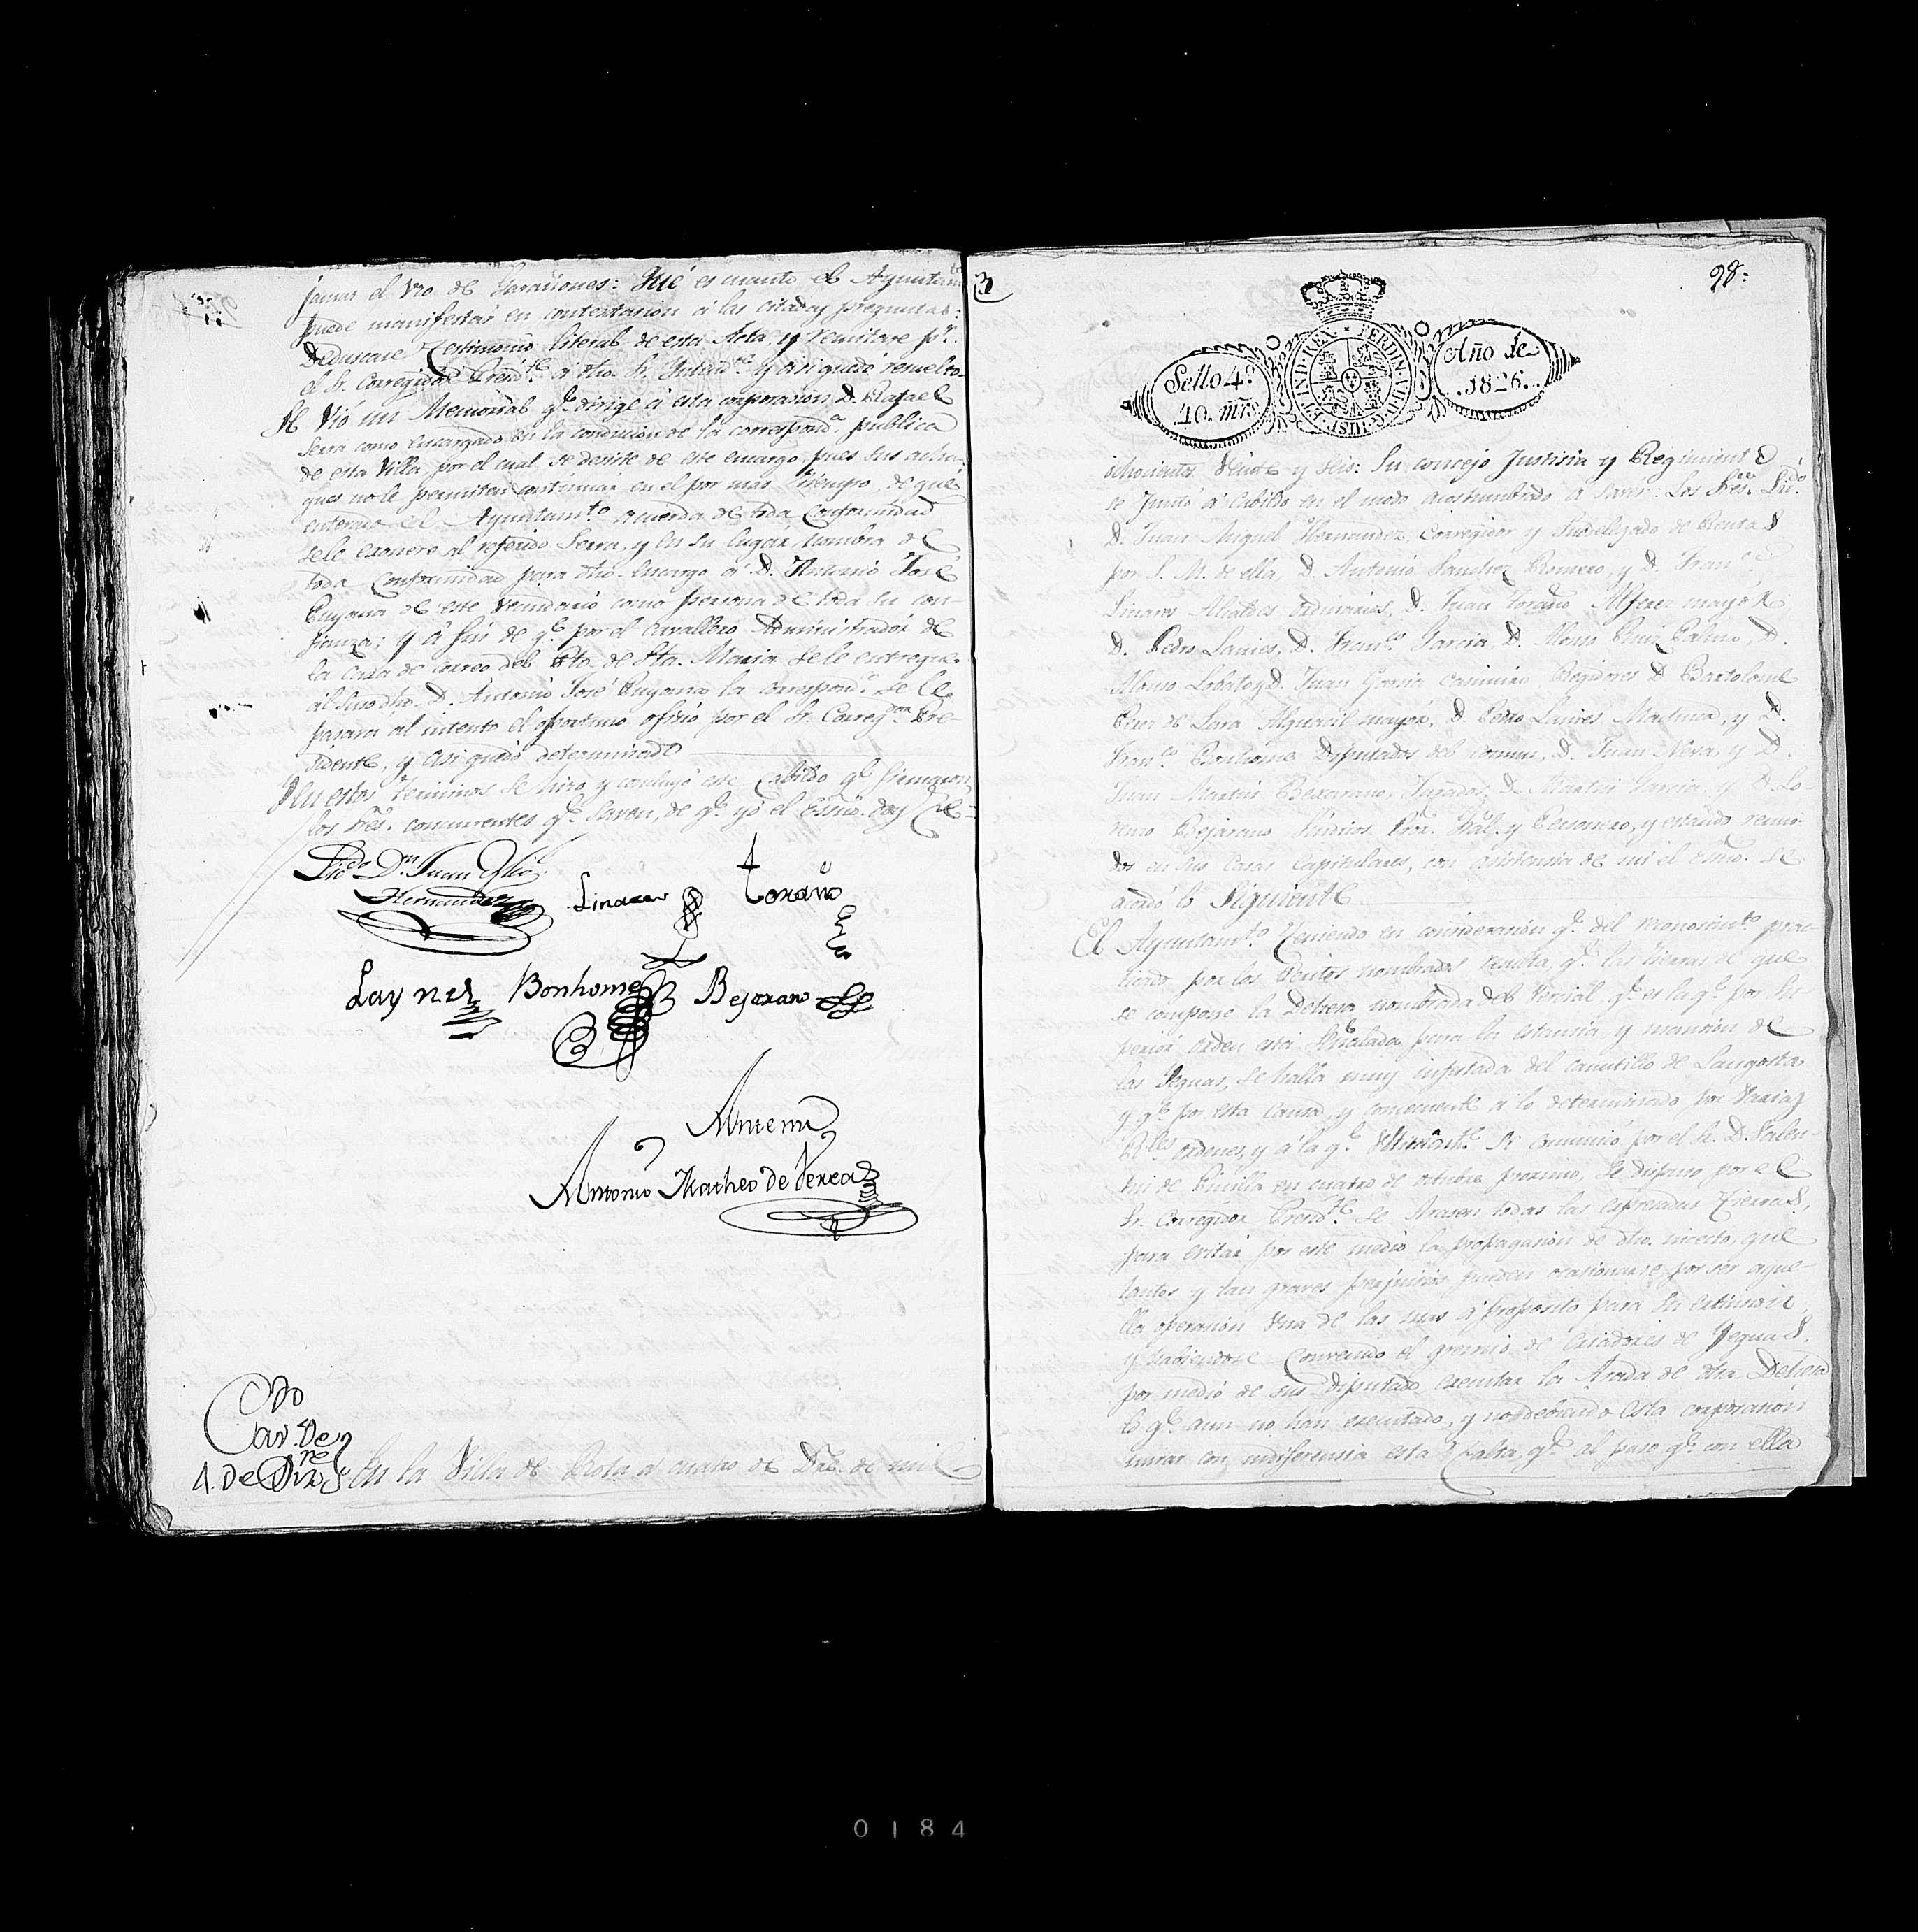 jamas el vso de Garañones: Que es cuanto el Ayuntam.to
puede manifestar en contextacion á las citadas preguntas:
deduscase Testimonio literal de esta Acta, y remitase p.r
el Sr. Corregidor Presid.te á dho. Sr. Intend.te y asi quedó resuelto.
Se Vió un Memorial q.e dirige á esta corporacion D. Rafael
Serra como encargado en la conducion de la correspond.a publica
de esta Villa, por el cual se desiste de este encargo, pues sus acha-
ques no le permiten continuar en el por mas tiempo, de que
enterado el Ayuntam.to acuerda de toda conformidad
se le exonere al referido Serra, y en su lugar nombra de
toda conformidad para dho. encargo á D. Antonio José
Puyana de este vecindario como persona de toda su con-
fianza; y á fin de q.e por el Cavallero Administrador de
la Casa de Correo del Pto. de Sta. Maria se le entregue
al susodho. D. Antonio José Puyana la correspond.a se le
pasara al intento el oportuno oficio por el Sr. Correg.dor Pre-
sidente, y asi quedó determinado
En estos terminos se hizo, y concluyó este Cabildo q.e firmaron
los Sres. concurrentes q.e saven, de q.e yo el Essno. doy fee=
Licdo. Dn. Juan Migl.
Hernandez
Linares
Toraño
Laynes
Bonhome
Bejarano
Antemi
Antonio Matheo de Verea
Cdo
4. De Dizre
En la Villa de Rota á cuatro de Dre. de mil
98:
Sello 4º.
40. mrs.
FERDIN. VII. D. G. HISP. ET IND. REX
Año de
1826.
ochocientos Veinte y seis: Su concejo Justisia y Regimiento
se Juntó á Cabildo en el modo acostumbrado á saver: Los Sres. Licdo.
D. Juan Miguel Hernandez, Corregidor y Subdelegado de Rentas
por S. M. de ella, D. Antonio Sanchez Romero, y D. Fran.co
Linares Alcaldes ordinarios, D. Juan Toraño, Alferez mayor
D. Pedro Laines, D. Fran.co Garcia, D. Alonso Ruiz Calvo, D.
Alonso Lobato y D. Juan Garcia Regidores D. Bartolome
Ruiz de Lara Alguacil mayor, D. Pedro Laines Martinez, y D.
Fran.co Bonhome Diputados del comun, D. Juan Niza, y D.
Juan Martin Bexarano, Jurados, D. Martin Garcia, y D. Lo-
renzo Bejarano Síndicos Pror. Gral. y Personero, y estando reuni-
dos en sus Casas Capitulares, con asistensia de mi el Essno. se
acordó lo siguiente
El Ayuntam.to Teniendo en consideración q.e del reconosim.to prac-
ticado por los Peritos nombrados resulta, q.e las tierras de que
se compone la Dehesa nombrada del Vercial, q.e es la q.e por Su-
perior orden está señalada para la estansia y mansion de
las Yeguas, se halla muy infestada del canutillo de Langosta
y q.e por esta causa, y consecuente á lo determinado por varias
R.les ordenes, y á la q.e ultimam.te se comunicó por el Sr. D. Valen-
tin de Pinilla en cuatro de octubre proximo, se dispuso por el
Sr. Corregidor Presid.te se Arasen todas las expresadas Tierras,
para evitar por este medio la propagasion de dho. incecto, que
tantos y tan graves perjuicios pueden ocasionarse, por ser aque-
lla operasion vna de las mas á proposito para su estincion,
y habiendose convenido el gremio de Criadores de Yeguas,
por medio de sus Diputados executar la Arada de dha. Dehesa
lo q.e aun no han executado, y no debiendo esta corporasion
mirar con indiferensia esta falta, q.e al paso q.e con ella
0184